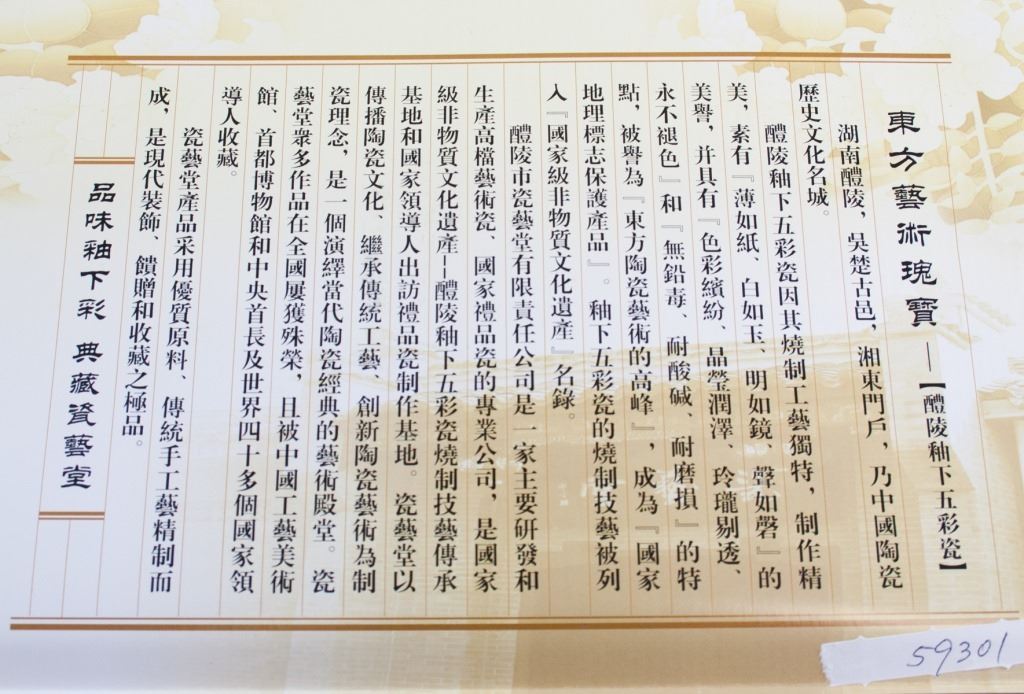 東方藝術瑰寶—【醴陵釉下五彩瓷】
湖南醴陵，吳楚古邑，湘東門戶，乃中國陶瓷
歷史文化名城。
醴陵釉下五彩瓷因其燒制工藝獨特，制作精
美，素有『薄如紙、白如玉、明如鏡、聲如磬』的
美譽，并具有『色彩繽紛、晶瑩潤澤、玲瓏剔透、
永不褪色』和『無鉛毒、耐酸碱、耐磨損』的特
點，被譽為『東方陶瓷藝術的高峰』，成為『國家
地理標志保護産品』。釉下五彩瓷的燒制技藝被列
入『國家級非物質文化遺產』名錄。
醴陵市瓷藝堂有限責任公司是一家主要研發和
生產高檔藝術瓷、國家禮品瓷的專業公司，是國家
級非物質文化遺產--醴陵釉下五彩瓷燒制技藝傳承
基地和國家領導人出訪禮品瓷制作基地。瓷藝堂以
傳播陶瓷文化、繼承傳統工藝、創新陶瓷藝術為制
瓷理念，是一個演繹當代陶瓷經典的藝術殿堂。瓷
藝堂衆多作品在全國屢獲殊榮，且被中國工藝美術
館、首都博物館和中央首長及世界四十多個國家領
導人收藏。
瓷藝堂產品采用優質原料、傳統手工藝精制而
成，是現代裝飾、饋贈和收藏之極品。
品味釉下彩 典藏瓷藝堂
59301